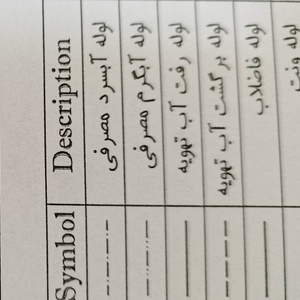 Symbol Description
لوله آبسرد مصرفی
لوله آبگرم مصرفی
لوله رفت آب تهویه
لوله برگشت آب تهویه
لوله فاضلاب
لوله ونت